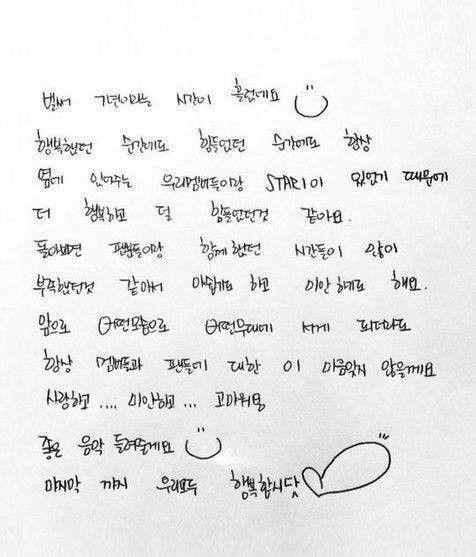 벌써 7년이라는 시간이 흘렀네요
행복했던 순간에도 힘들었던 순간에도 항상
옆에 있어주는 우리멤버들이랑 STAR1이 있었기 때문에
더 행복하고 덜 힘들었던것 같아요.
돌아보면 팬분들이랑 함께했던 시간들이 많이
부족했던것 같아서 아쉽기도 하고 미안하기도 해요.
앞으로 어떤모습으로 어떤무대에 서게 되더라도
항상 멤버들과 팬들에 대한 이 마음잊지 않을게요
사랑하고.... 미안하고... 고마워잉
좋은 음악 들려줄게요
마지막 까지 우리모두 행복합시닷